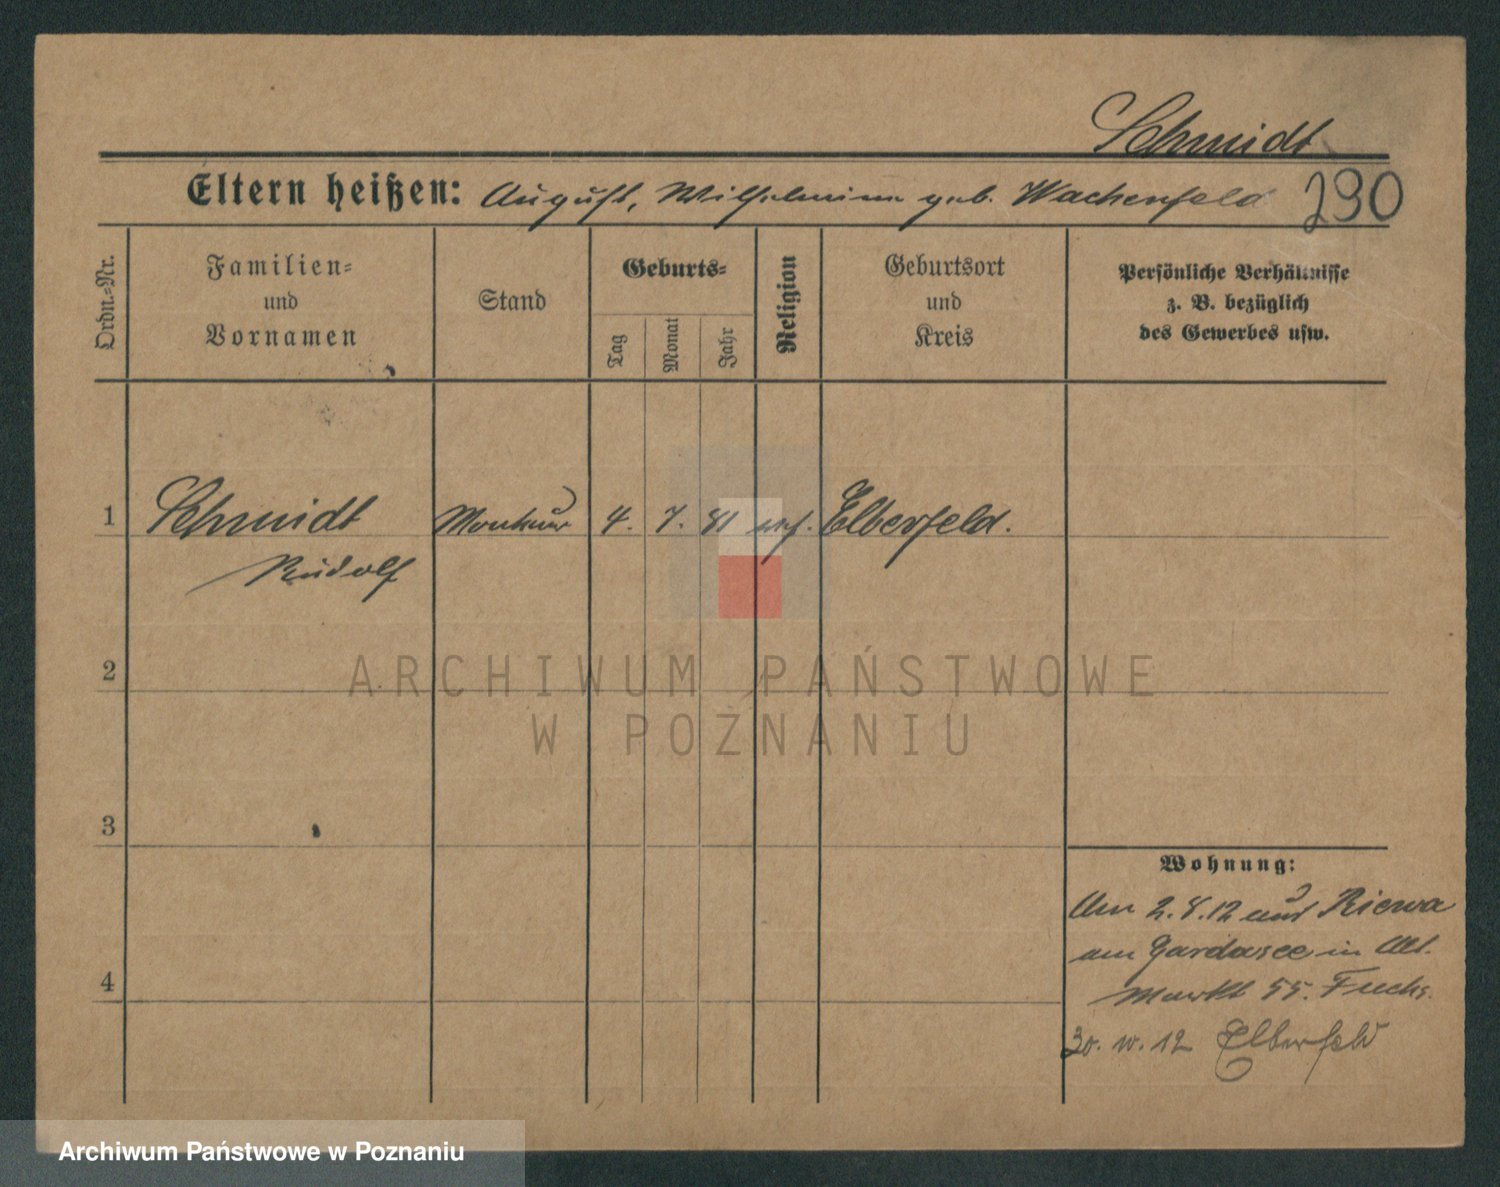 Schmidt
Eltern heißen: August, Wilhelmine geb. Wachenfeld 290
Ordn.=Nr.
Familien=
und
Vornamen
Stand
Geburts=
Tag
Monat
Jahr
Religion
Geburtsort
und
Kreis
Persönliche Verhältnisse
z. B. bezüglich
des Gewerbes usw.
1 Schmidt Monteur 4. 7. 81 Elberfeld.
Rudolf
2
ARCHIWUM PAŃSTWOWE
W POZNANIU
3
4
Wohnung:
Am 2.8.12 aus
am Gardasee in Alt.
Markt 55. Fuchs.
30. 12 Elberfeld
Archiwum Państwowe w Poznaniu